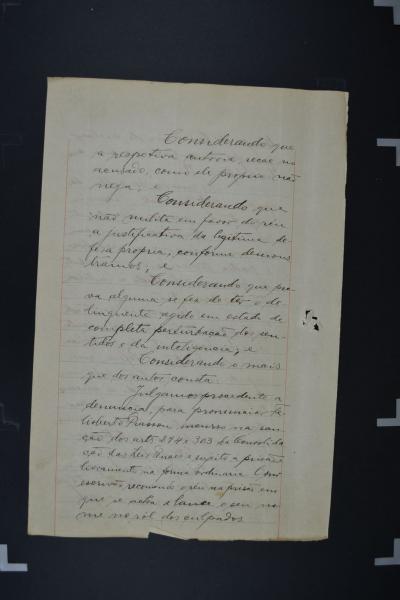 Considerando que
a respectiva autoria, recae no
acusado, como ele proprio não
nega; e
Considerando que
não milita em favor do réu
a justificativa da legitima de-
fesa propria, conforme demons-
tramos; e
Considerando que pro-
va alguma se fez de ter o de-
linquente agido em estado de
completa perturbação dos sen-
tidos e da inteligencia; e
Considerando o mais
que dos autos consta:
Julgamos procedente a
denuncia, para pronunciar
incurso na san-
ção dos arts. 294 e 303 da Consolida-
ção das Leis Penaes e sujeito a prisão e
livramento na forma ordinaria. O
escrivão recomende o réu na prisão em
que se acha e lance o seu no-
me no ról dos culpados.